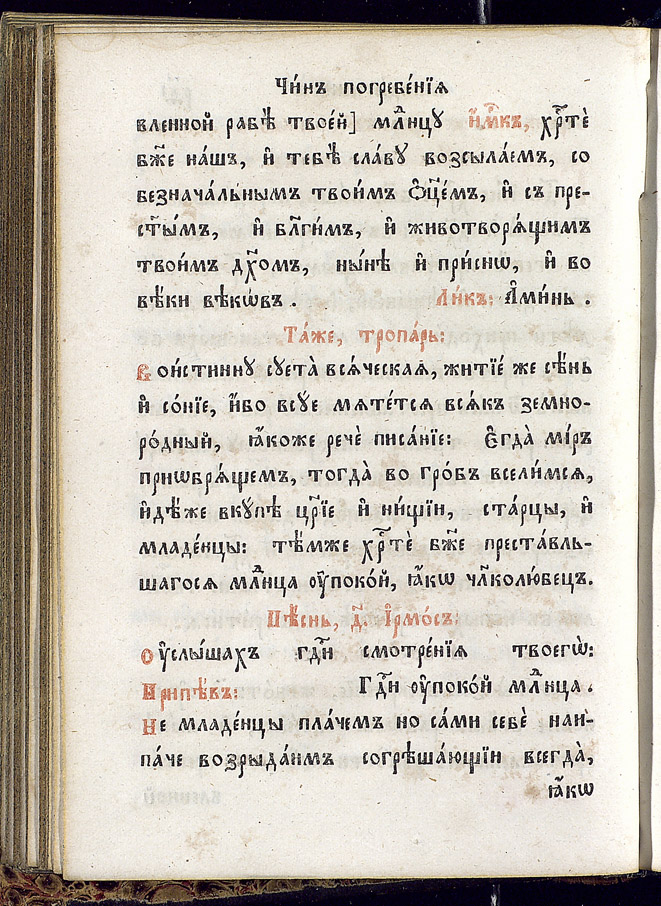 Чи́нъ погребе́нїѧ
вленной рабѣ̀ твое́й] мл҃нцꙋ и҆́м҃къ, хрⷭ҇тѐ
бж҃е на́шъ, и҆ тебѣ̀ сла́вꙋ возсыла́емъ, со
безнача́льнымъ твои́мъ ѻ҆ц҃е́мъ, и҆ съ пре-
ст҃ы́мъ, и҆ бл҃ги́мъ, и҆ животворѧ́щимъ
твои́мъ дх҃омъ, ны́нѣ и҆ при́снѡ, и҆ во
вѣ́ки вѣкѡ́въ. Ли́къ: А҆ми́нь.
Та́же, тропа́рь:
Вои́стиннꙋ сꙋета̀ всѧ́ческаѧ, житїе́ же сѣ́нь
и҆ со́нїе, и҆́бо всꙋ́е мѧте́тсѧ всѧ́къ земно-
ро́дный, ꙗ҆́коже речѐ писа́нїе: Е҆гда̀ мі́ръ
прїѡбрѧ́щемъ, тогда̀ во гро́бъ всели́мсѧ,
и҆дѣ́же вкꙋ́пѣ цр҃їе и҆ ни́щїи, ста́рцы, и҆
младе́нцы: тѣ́мже хрⷭ҇тѐ бж҃е преста́вль-
шагосѧ мл҃нца ᲂу҆поко́й, ꙗ҆́кѡ чл҃колю́бецъ.
Пѣ́снь, д҃. І҆рмо́съ:
Оу҆слы́шахъ гдⷭ҇и смотре́нїѧ твоегѡ̀:
Припѣ́въ: Гдⷭ҇и ᲂу҆поко́й мл҃нца.
Не младе́нцы пла́чемъ но са́ми себѐ наи-
па́че возрыда́имъ согрѣша́ющїи всегда̀,
ꙗ҆́кѡ